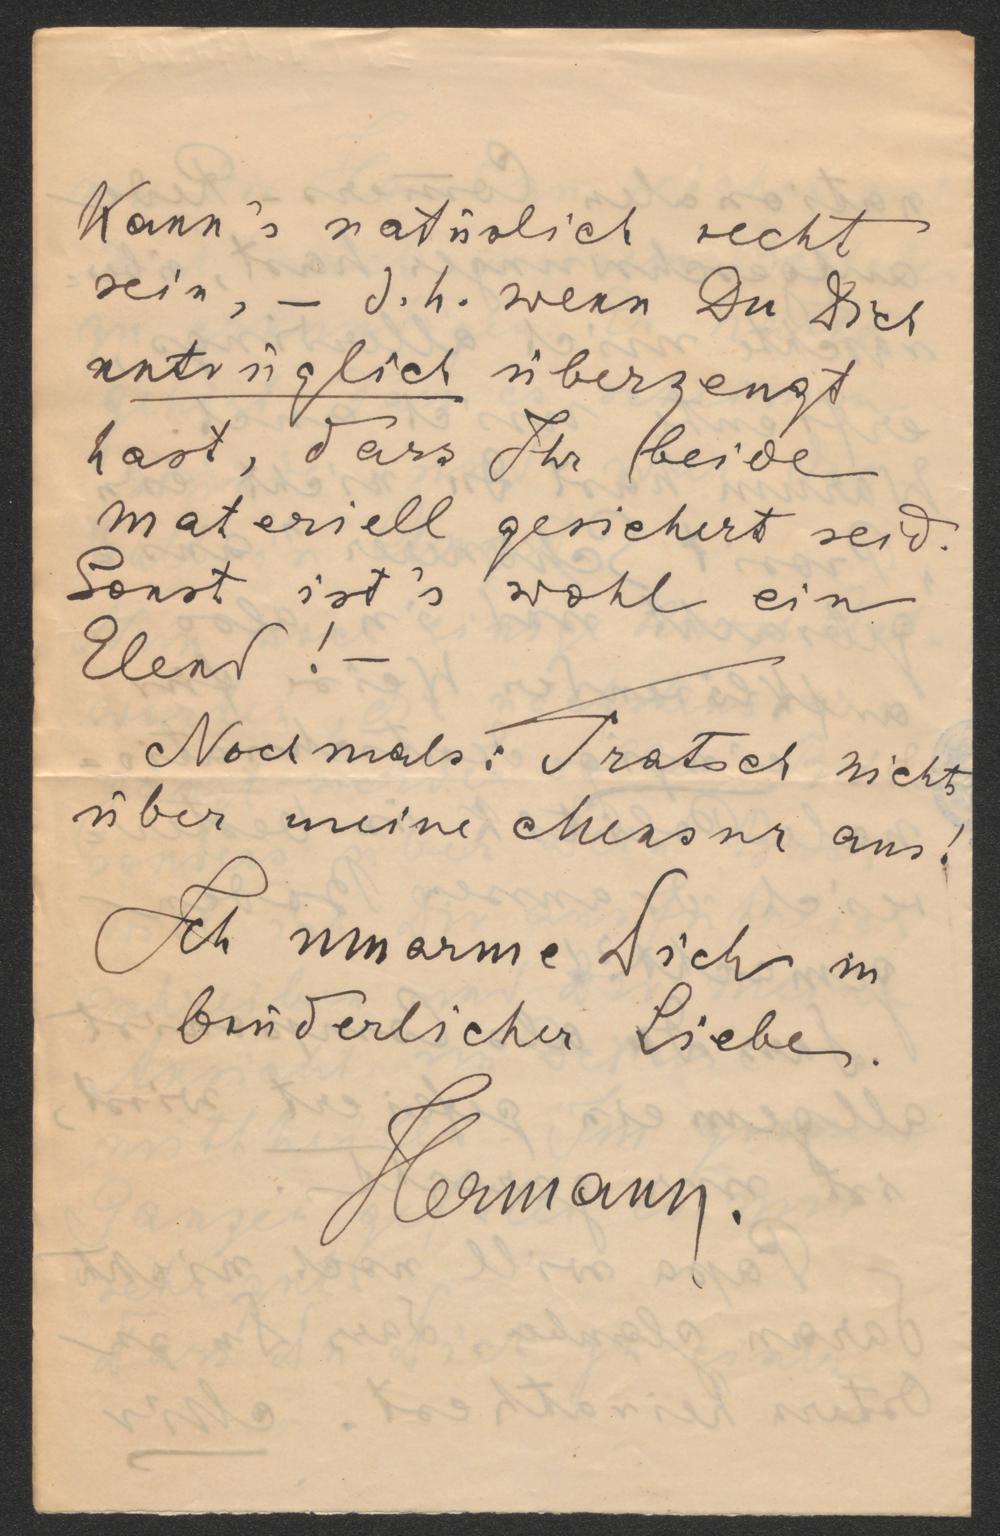 kann's natürlich recht
sein, – d. h. wenn Du Dich
untrüglich überzeugt
hast, dass Ihr beide
materiell gesichert seid.
Sonst ist's wohl ein
Elend! –
Nochmals: Tratsch nichts
über meine Mensur aus!
Ich umarme Dich in
brüderlicher Liebe.
Hermann.